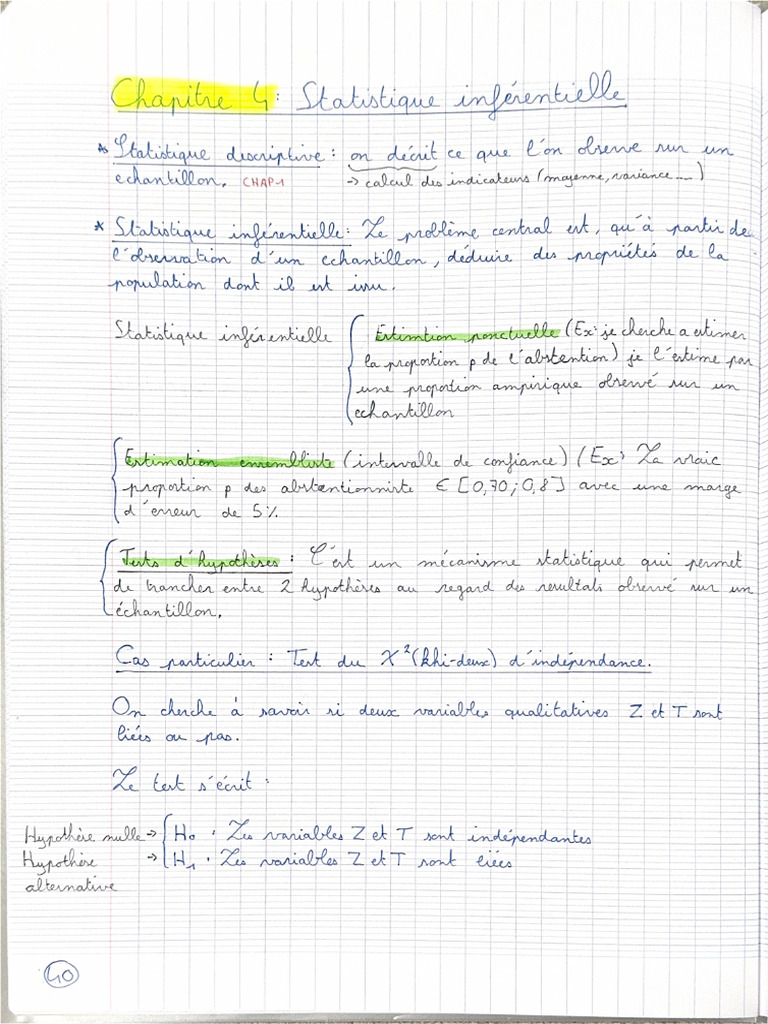 Chapitre 4 : Statistique inférentielle
* Statistique descriptive : on décrit ce que l'on observe sur un
echantillon. CHAP-1 → calcul des indicateurs (moyenne, variance ...)
* Statistique inférentielle : Le problème central est, qu'à partir de
l'observation d'un echantillon, déduire des propriétés de la
population dont il est issu.
Statistique inférentielle { Estimtion ponctuelle (Ex: je cherche a estimer
la proportion p de l'abstention) je l'estime par
une proportion ampirique observé sur un
echantillon
Estimation ensembliste (intervalle de confiance) (Ex: La vraie
proportion p des abstentionniste ∈ [0,70 ; 0,8] avec une marge
d'erreur de 5%
Tests d'hypothèses : C'est un mécanisme statistique qui permet
de trancher entre 2 hypothèses au regard des resultats observé sur un
échantillon.
Cas particulier : Test du X² (khi-deux) d'indépendance.
On cherche à savoir si deux variables qualitatives Z et T sont
liées ou pas.
Le test s'écrit :
Hypothèse nulle → { H₀ : Les variables Z et T sont indépendantes
Hypothèse → H₁ : Les variables Z et T sont liées
alternative
40